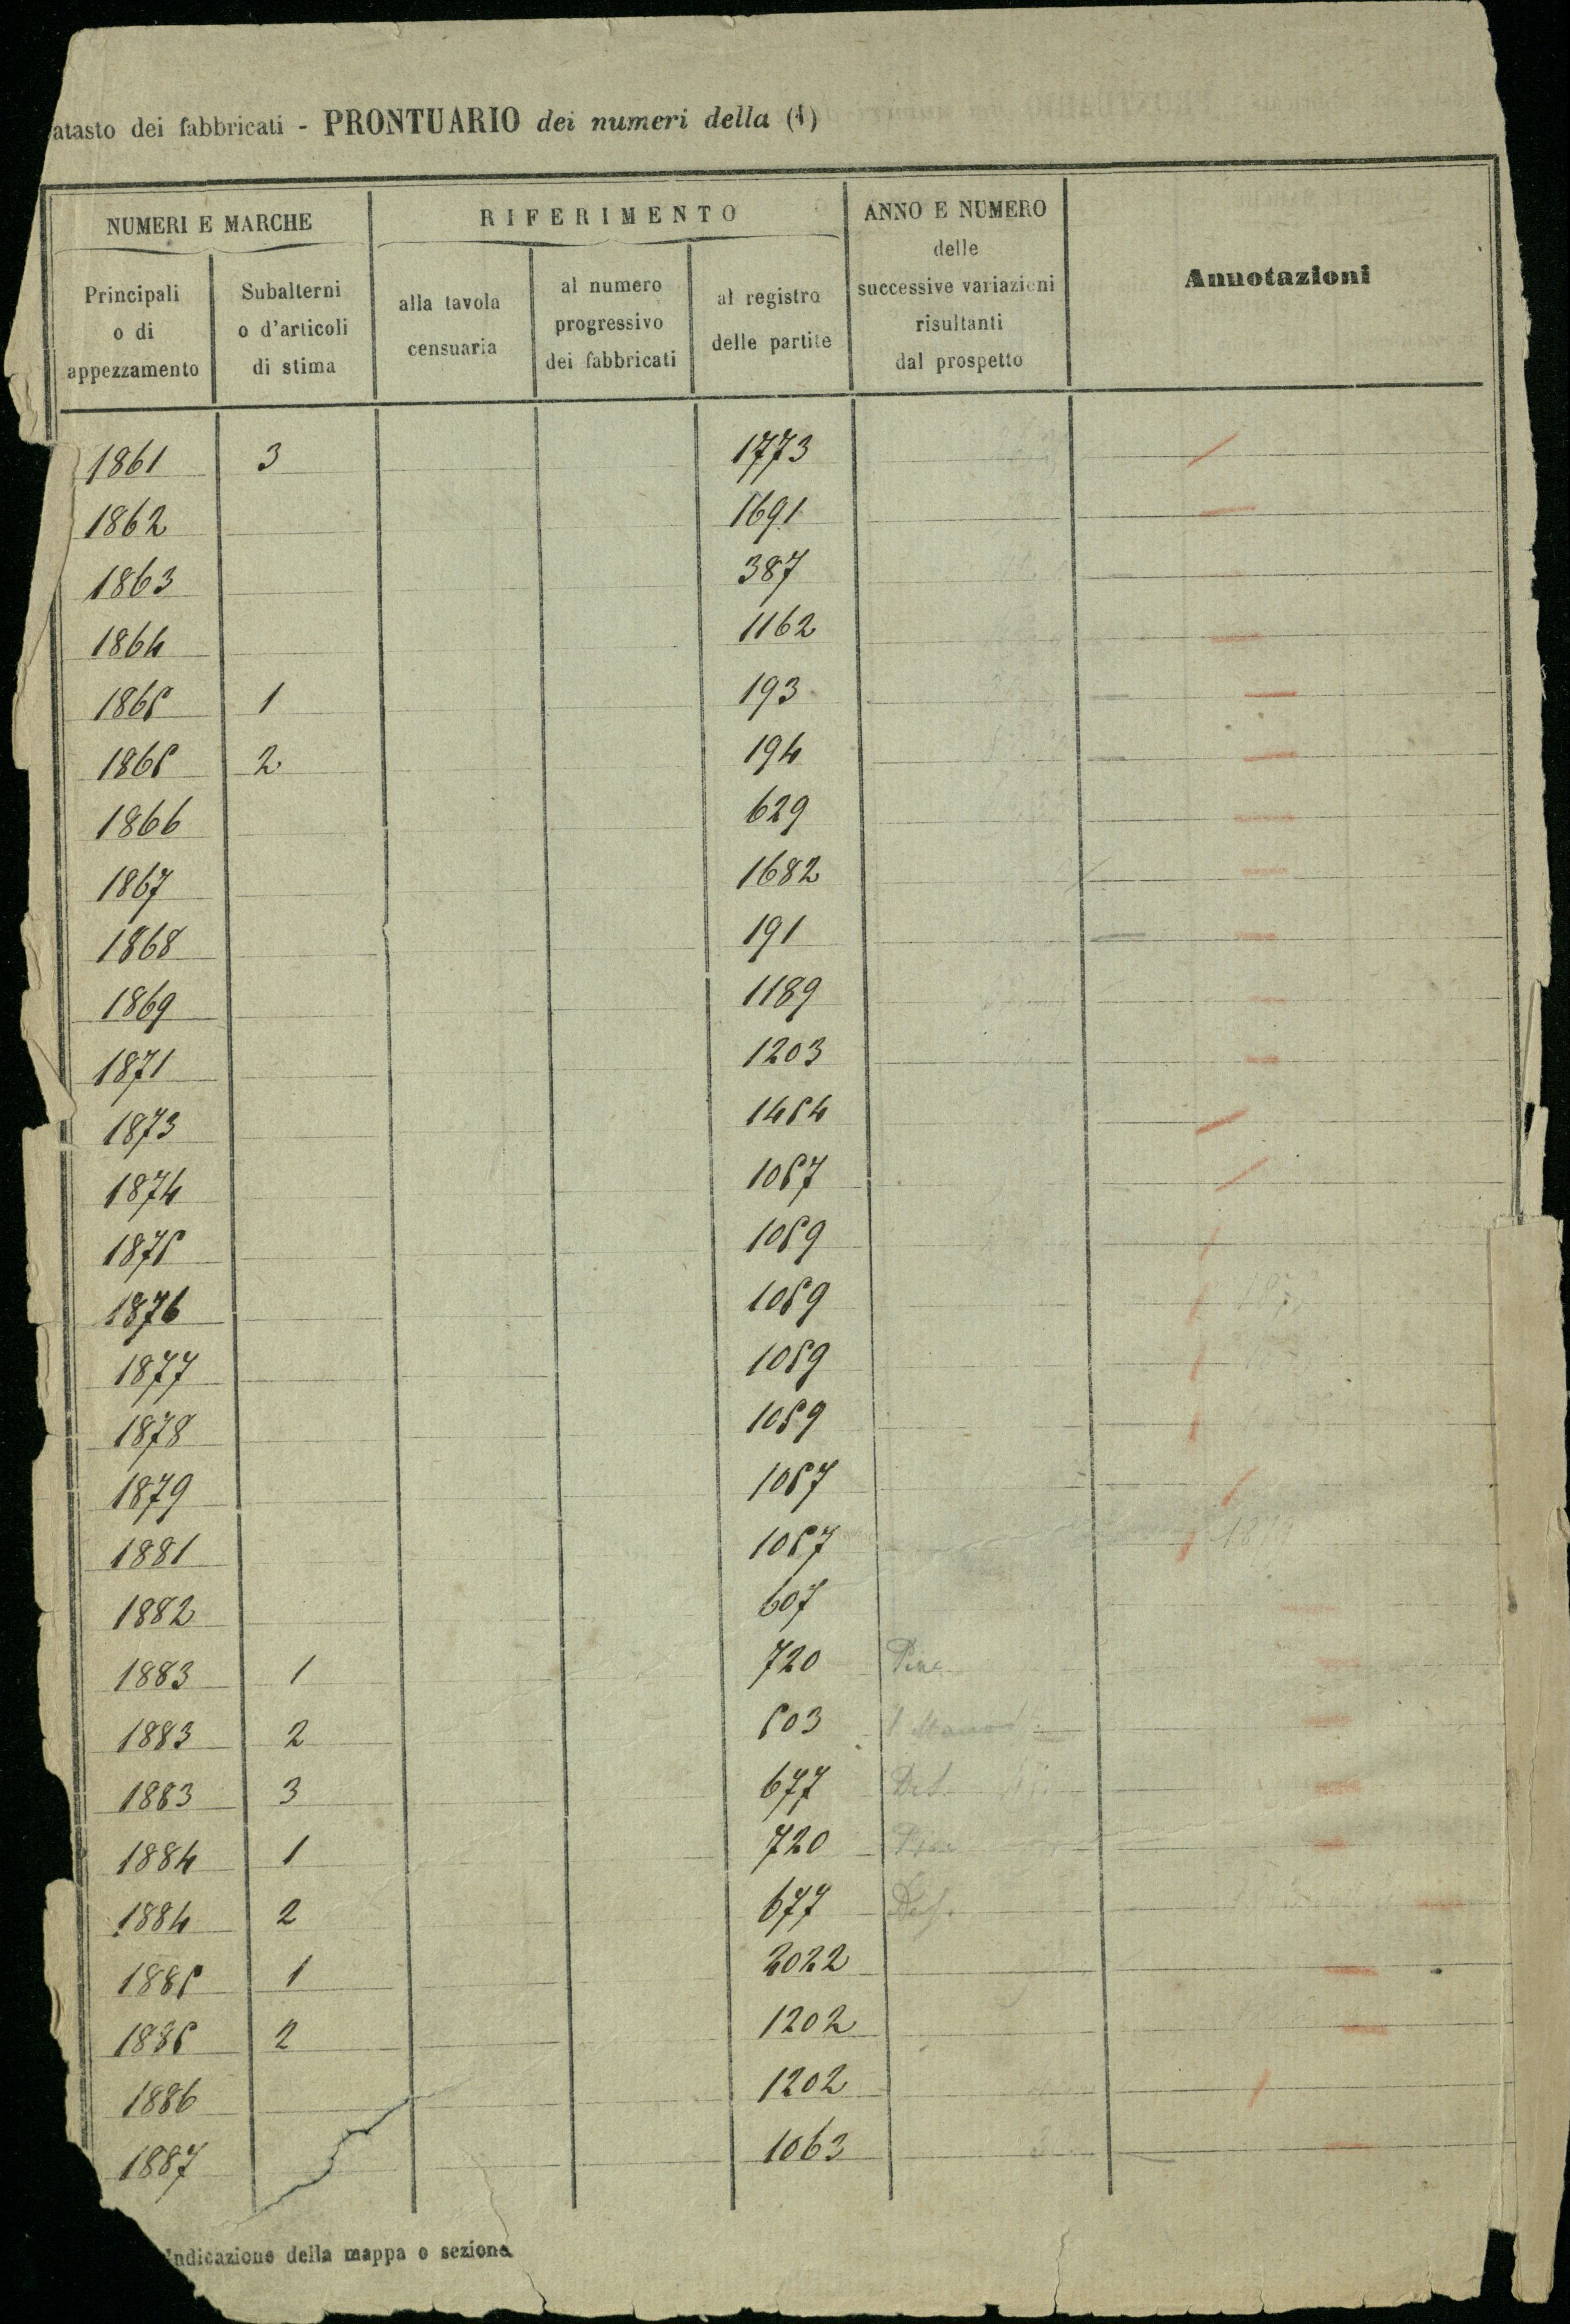 atasto dei fabbricati - PRONTUARIO dei numeri della (1)
NUMERI E MARCHE
Principali
o di
appezzamento
Subalterni
o d'articoli
di stima
RIFERIMENTO
alla tavola
censuaria
al numero
progressivo
dei fabbricati
al registro
delle partite
ANNO E NUMERO
delle
successive variazioni
risultanti
dal prospetto
Annotazioni
1861 3 1773
1862 1691
1863 387
1864 1162
1865 1 193
1865 2 194
1866 629
1867 1682
1868 191
1869 1189
1871 1203
1873 1454
1874 1057
1875 1059
1876 1059
1877 1059
1878 1059
1879 1057
1881 1057
1882 607
1883 1 720
1883 2 503
1883 3 677
1884 1 720
1884 2 677
1885 1 2022
1885 2 1202
1886 1202
1887 1063
Indicazione della mappa o sezione